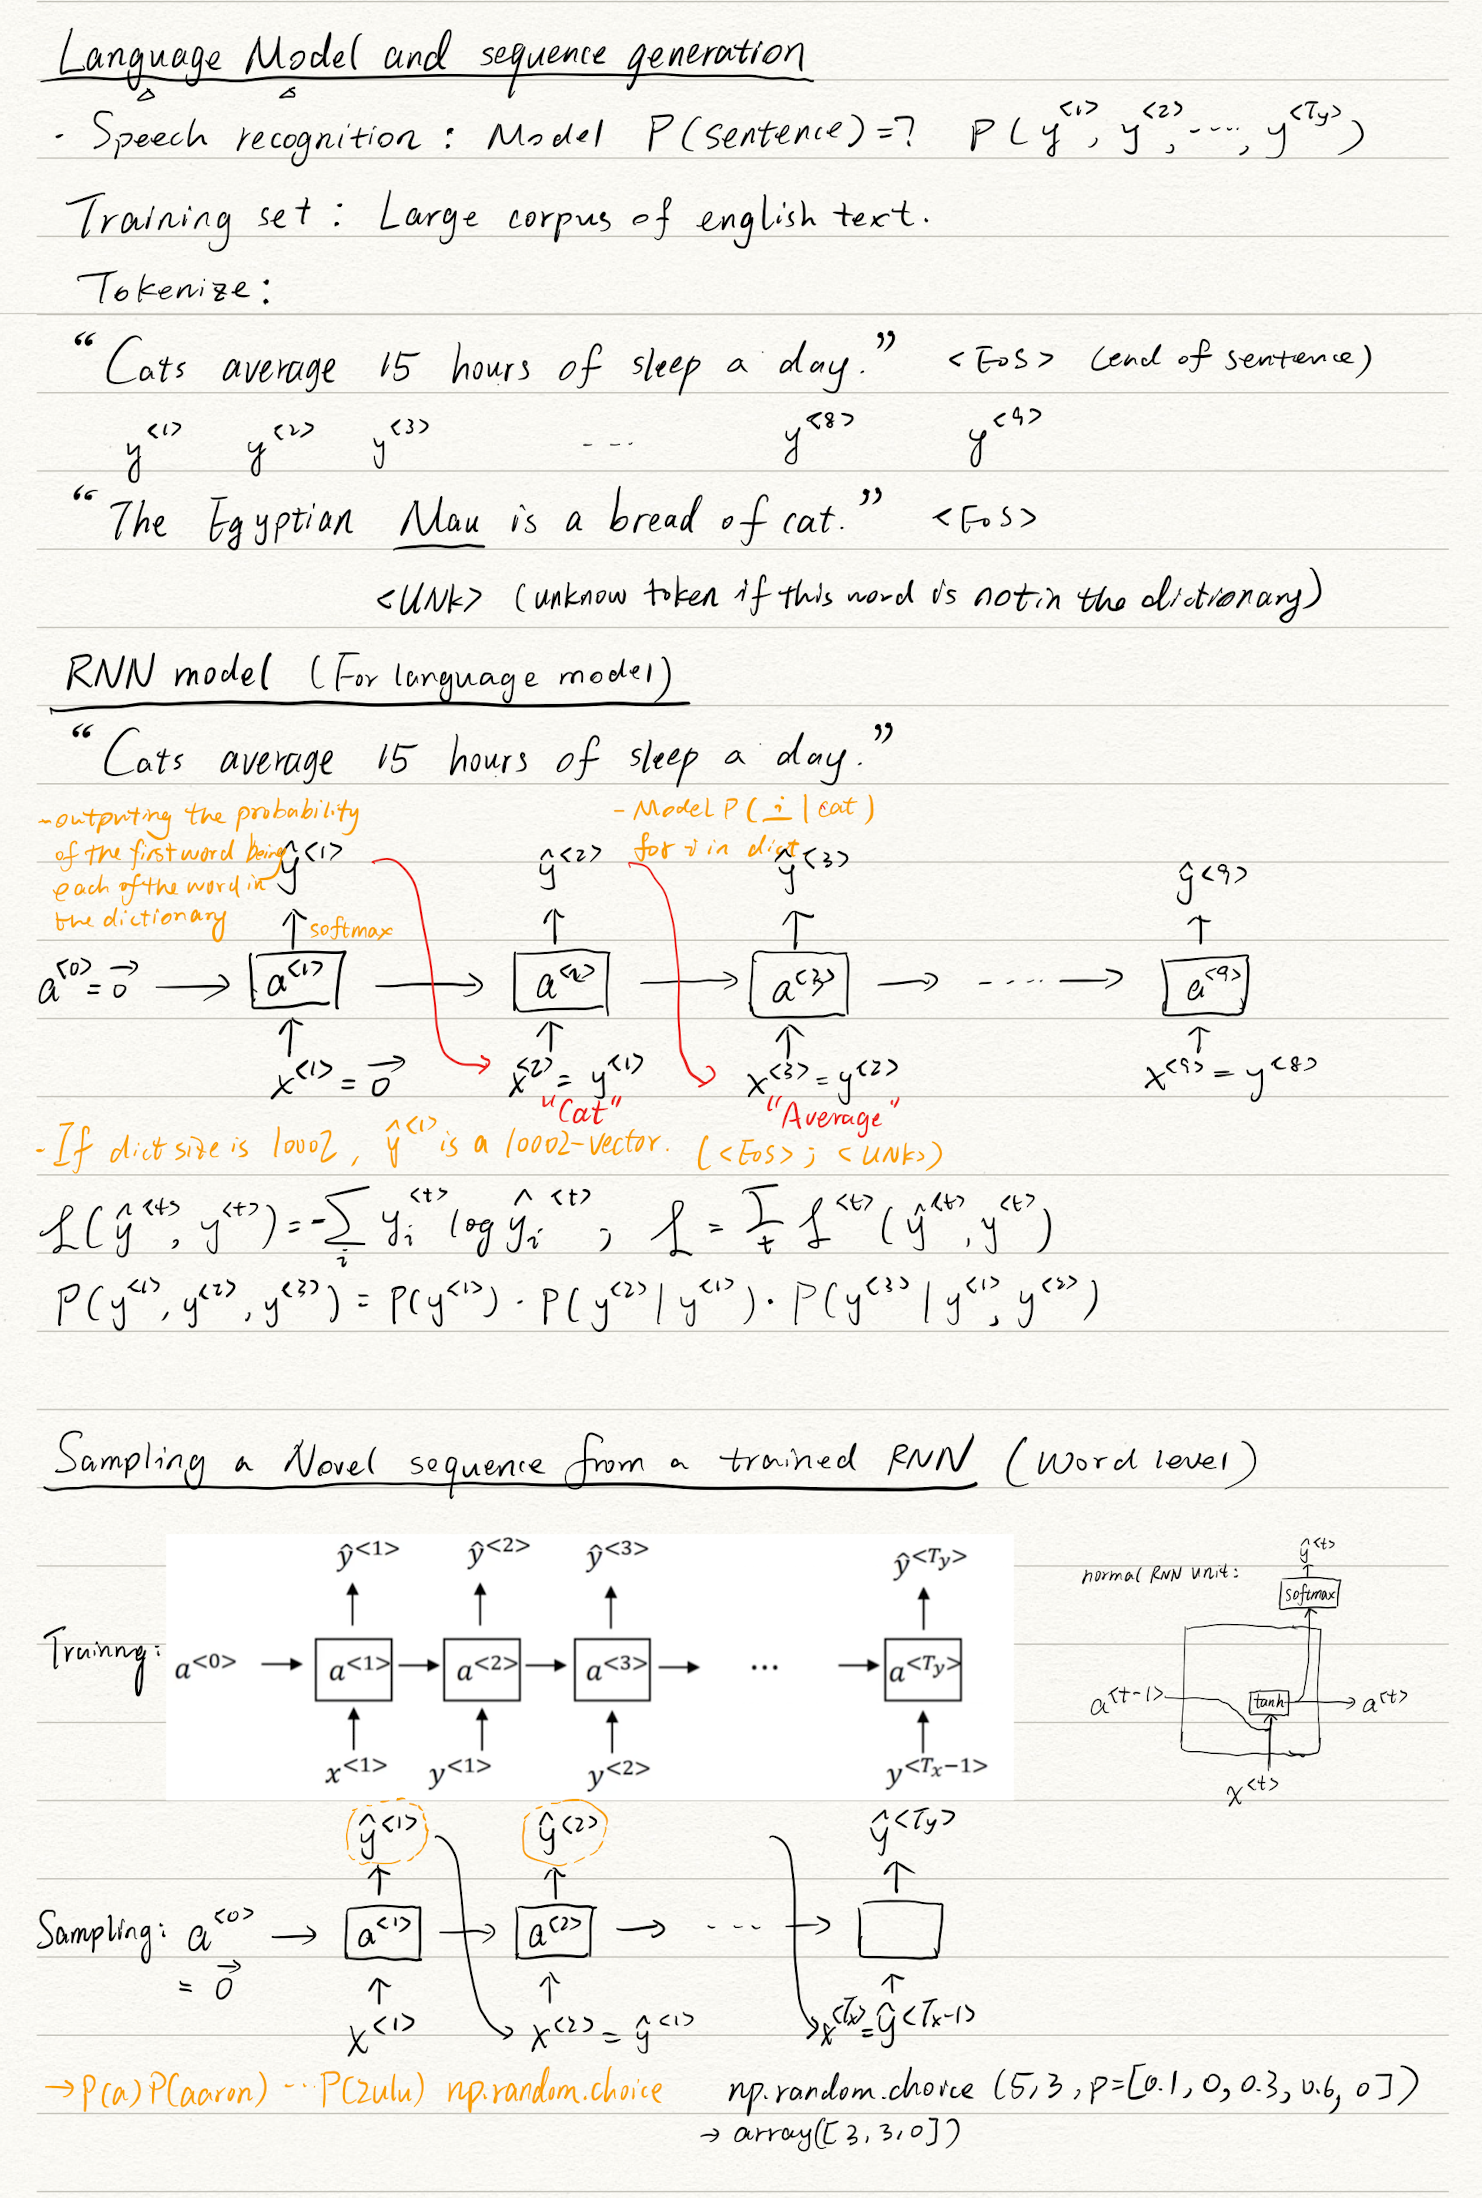 Language Model and sequence generation
- Speech recognition : Model P(sentence)=? P(y<1>, y<2>, ---, y<Ty>)
Training set : Large corpus of english text.
Tokenize :
"Cats average 15 hours of sleep a day." <EOS> (end of sentence)
y<1> y<2> y<3> --- y<8> y<9>
"The Egyptian Mau is a bread of cat." <EOS>
<UNK> (unknow token if this word is not in the dictionary)
RNN model (For language model)
"Cats average 15 hours of sleep a day."
- outputing the probability of the first word being each of the word in the dictionary
- Model P( i | cat ) for i in dict
ŷ<1> ŷ<2> ŷ<3> ŷ<9>
softmax
a<0> = 0⃗ → a<1> → a<2> → a<3> → ---- → a<9>
x<1> = 0⃗ x<2> = y<1> x<3> = y<2> x<9> = y<8>
"Cat" "Average"
- If dict size is 10002, ŷ<1> is a 10002-vector. (<EOS>; <UNK>)
L(ŷ<t>, y<t>) = -∑i yi<t> log ŷi<t> ; L = ∑t L<t>(ŷ<t>, y<t>)
P(y<1>, y<2>, y<3>) = P(y<1>) · P(y<2> | y<1>) · P(y<3> | y<1>, y<2>)
Sampling a Novel sequence from a trained RNN (Word level)
ŷ<1> ŷ<2> ŷ<3> ŷ<Ty>
Trainng : a<0> → a<1> → a<2> → a<3> → ... → a<Ty>
x<1> y<1> y<2> y<Tx-1>
normal RNN unit :
ŷ<t>
softmax
a<t-1> tanh → a<t>
x<t>
ŷ<1> ŷ<2> ŷ<Ty>
Sampling : a<0> → a<1> → a<2> → --- →
= 0⃗
x<1> x<2> = ŷ<1> x<Tx> = ŷ<Tx-1>
→ P(a) P(aaron) --- P(zulu) np.random.choice np.random.choice (5, 3, p=[0.1, 0, 0.3, 0.6, 0])
→ array([3, 3, 0])